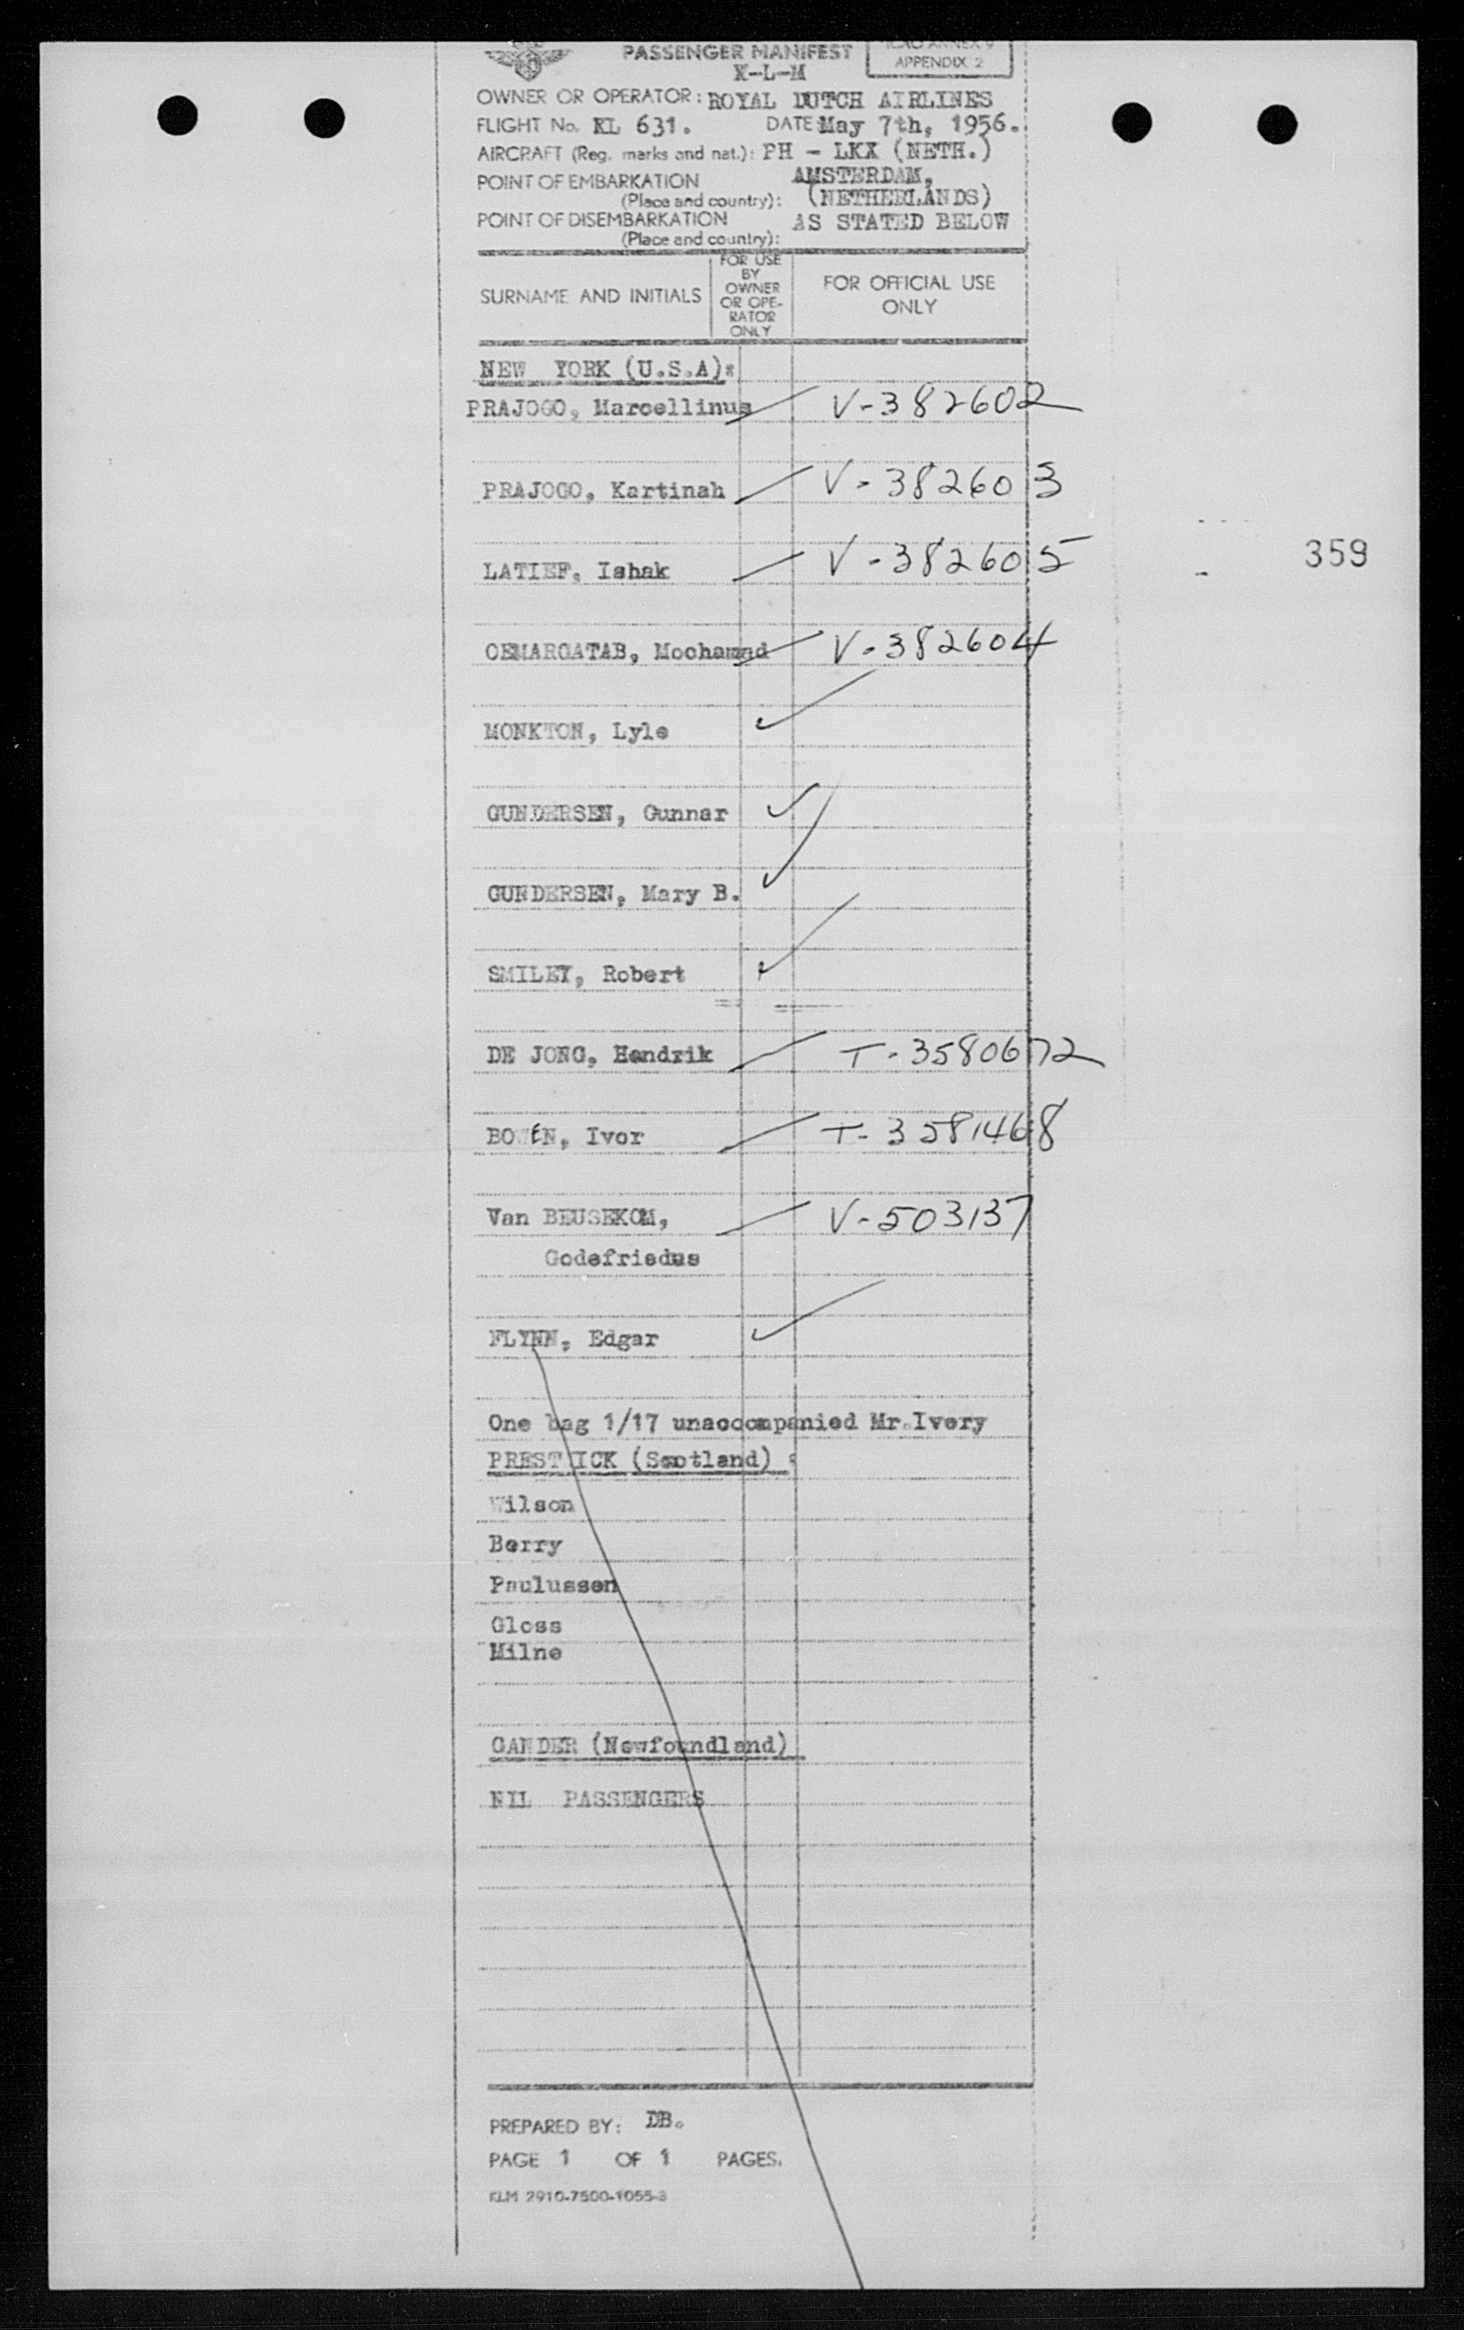 PASSENGER MANIFEST
ICAO ANNEX 9
APPENDIX 2
K-L-M
OWNER OR OPERATOR: ROYAL DUTCH AIRLINES
FLIGHT No. KL 631. DATE: May 7th, 1956.
AIRCRAFT (Reg. marks and nat.): PH - LKX (NETH.)
POINT OF EMBARKATION AMSTERDAM,
(Place and country): (NETHERLANDS)
POINT OF DISEMBARKATION AS STATED BELOW
(Place and country):
SURNAME AND INITIALS
FOR USE
BY
OWNER
OR OPE-
RATOR
ONLY
FOR OFFICIAL USE
ONLY
NEW YORK (U.S.A):
PRAJOGO, Marcellinus V-382602
PRAJOGO, Kartinah V-382603
LATIEF, Ishak V-382605
359
OEMARGATAB, Mochamad V-382604
MONKTON, Lyle
GUNDERSEN, Gunnar
GUNDERSEN, Mary B.
SMILEY, Robert
DE JONG, Hendrik T-3580672
BOWEN, Ivor T-3581468
Van BEUSEKOM, V-503137
Godefriedus
FLYNN, Edgar
One bag 1/17 unaccompanied Mr.Ivery
PRESTWICK (Scotland) :
Wilson
Berry
Paulussen
Gloss
Milne
GANDER (Newfoundland)
NIL PASSENGERS
PREPARED BY: DB.
PAGE 1 OF 1 PAGES.
KLM 2910-7500-1055-3